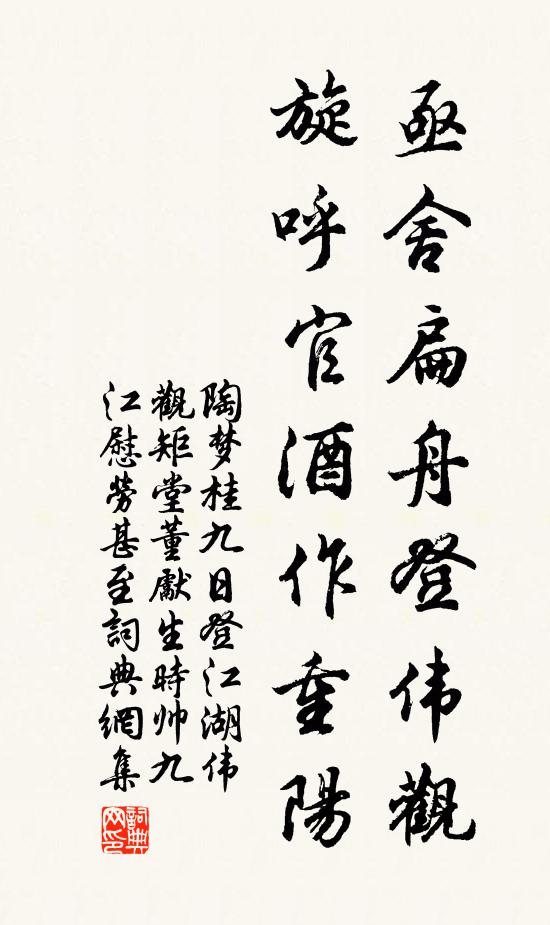 亟舍扁舟登伟觀
旋呼官酒作重陽
陶梦桂九日登江湖伟
觀矩堂董獻生時帅九
江慰勞甚至詞典網集
詞典网印